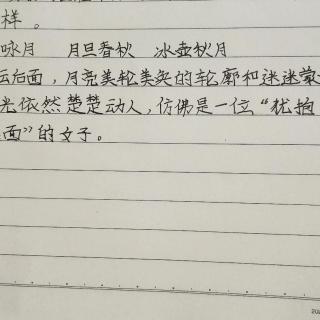 样。
咏月 月旦春秋 冰壶秋月
云后面，月亮美轮美奂的轮廓和迷迷蒙
光依然楚楚动人，仿佛是一位“犹抱
面”的女子。